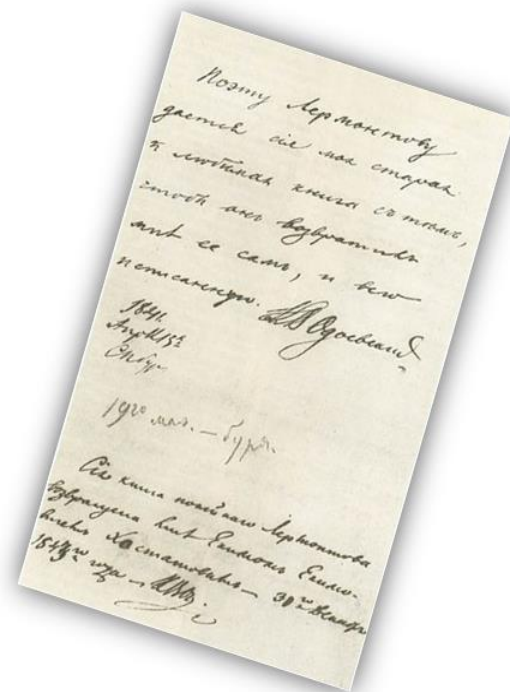 Поэту Лермонтову
дается сiя моя старая
и любимая книга съ тѣмъ,
чтобъ онъ возвратилъ
мнѣ ее самъ, и всю
исписанную. К В Одоевскiй
1841.
Апрѣл 13ᵉ
СПбург
19го мая. — буря.
Сiя книга покойнаго Лермонтова
возвращена мнѣ Екимомъ Екимо-
вичемъ Хостатовымъ — 30го Декабр
1843го года —